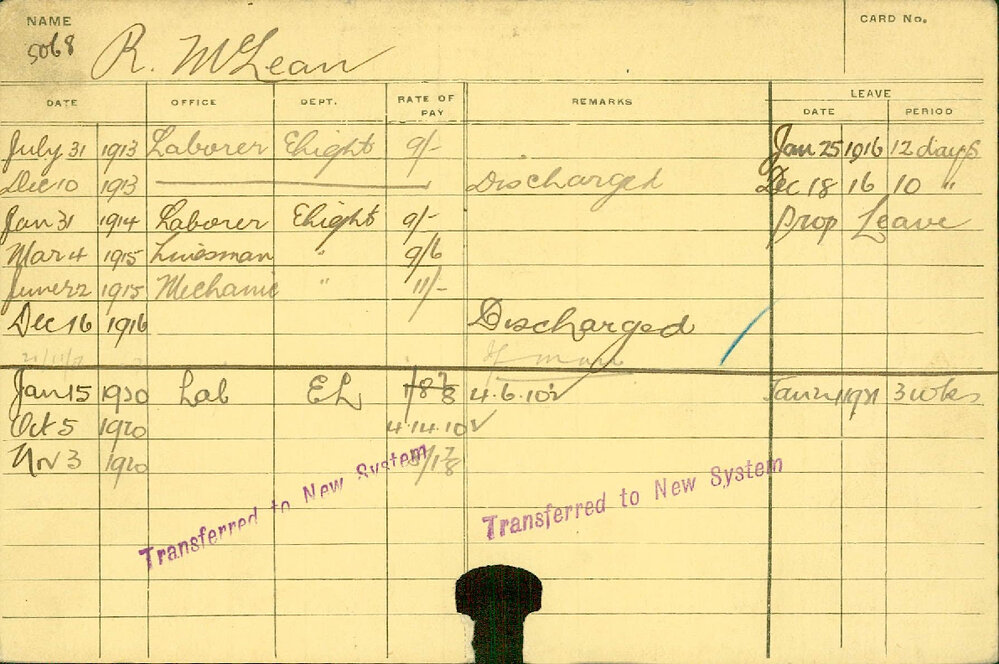 NAME
CARD No.
5068
R. McLean
LEAVE
DATE OFFICE DEPT. RATE OF PAY REMARKS DATE PERIOD
July 31 1913 Laborer Elight 9/- Jan 25 1916 12 days
Dec 10 1913 Discharged Dec 18 16 10 "
Jan 31 1914 Laborer Elight 9/- Prop Leave
Mar 4 1915 Linesman " 9/6
June 22 1915 Mechanic " 11/-
Dec 16 1916 Discharged
Jan 15 1920 Lab EL 4.6.10 Jan 1921 3 wks
Oct 5 1920 4.14.10
Nov 3 1920
Transferred to New System
Transferred to New System